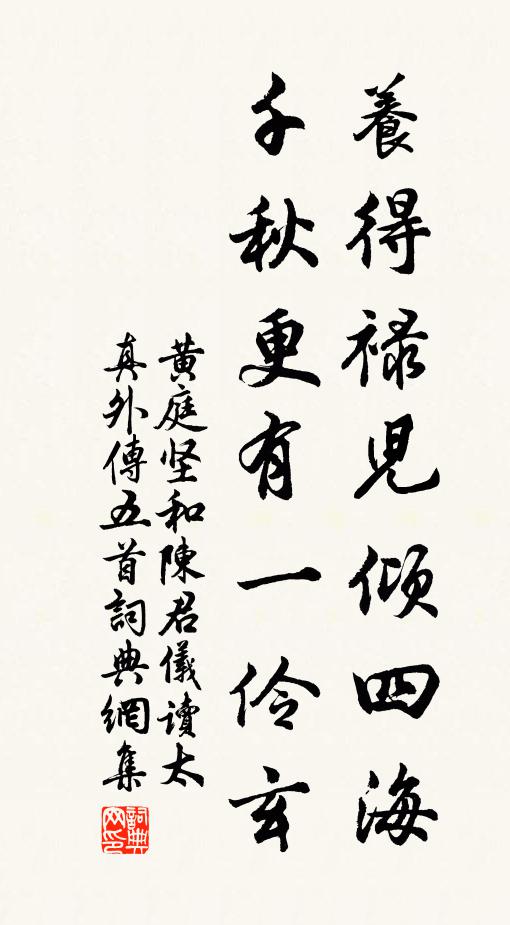 養得祿児傾四海
千秋更有一伶玄
黄庭坚和陳君儀讀太
真外傳五首詞典網集
詞典網印